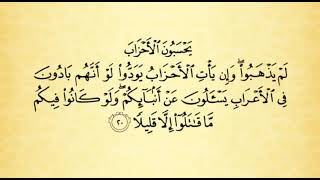 يَحْسَبُونَ ٱلْأَحْزَابَ
لَمْ يَذْهَبُوا۟ ۖ وَإِن يَأْتِ ٱلْأَحْزَابُ يَوَدُّوا۟ لَوْ أَنَّهُم بَادُونَ
فِى ٱلْأَعْرَابِ يَسْـَٔلُونَ عَنْ أَنۢبَآئِكُمْ ۖ وَلَوْ كَانُوا۟ فِيكُم
مَّا قَـٰتَلُوٓا۟ إِلَّا قَلِيلًا ۝٢٠